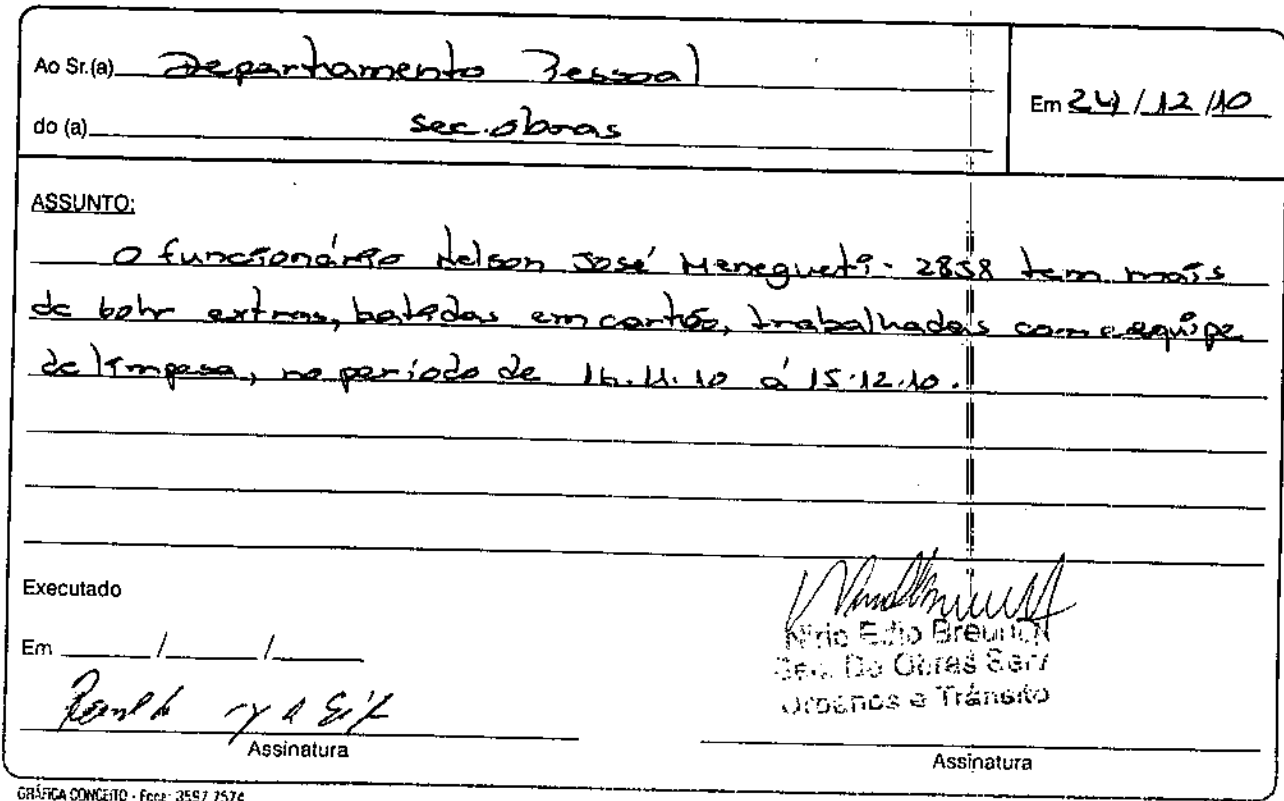 Ao Sr.(a) Departamento Pessoal
Em 24/12/10
do (a) sec. obras
ASSUNTO:
O funcionário Nelson José Menegueti - 2858 tem mais
de 60hr extras, batidas em cartão, trabalhadas com a equipe
de limpesa, no período de 16.11.10 á 15.12.10.
Executado
Em / /
Breunich
Sec. De Obras Serv
Urbanos e Trânsito
Assinatura
Assinatura
GRÁFICA CONCEITO - Fone: 3597 7574